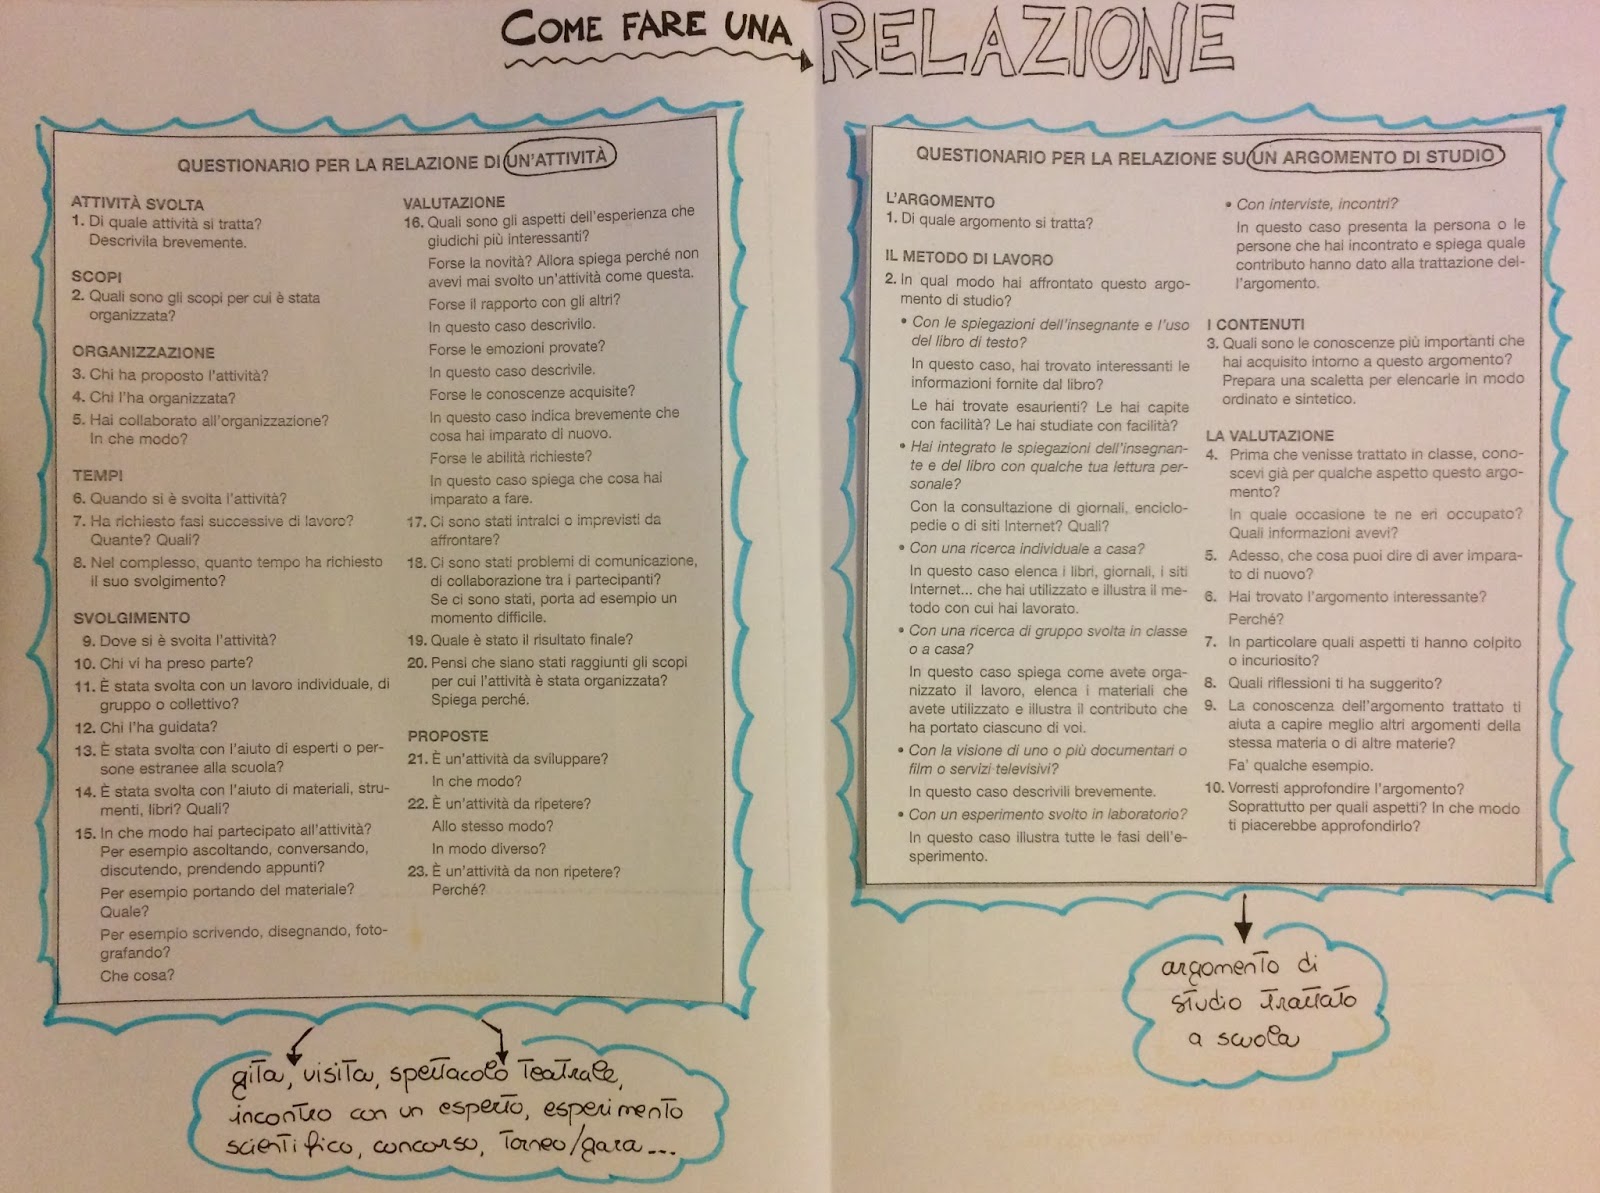 COME FARE UNA RELAZIONE
QUESTIONARIO PER LA RELAZIONE DI UN'ATTIVITÀ
ATTIVITÀ SVOLTA
1. Di quale attività si tratta?
Descrivila brevemente.
SCOPI
2. Quali sono gli scopi per cui è stata
organizzata?
ORGANIZZAZIONE
3. Chi ha proposto l'attività?
4. Chi l'ha organizzata?
5. Hai collaborato all'organizzazione?
In che modo?
TEMPI
6. Quando si è svolta l'attività?
7. Ha richiesto fasi successive di lavoro?
Quante? Quali?
8. Nel complesso, quanto tempo ha richiesto
il suo svolgimento?
SVOLGIMENTO
9. Dove si è svolta l'attività?
10. Chi vi ha preso parte?
11. È stata svolta con un lavoro individuale, di
gruppo o collettivo?
12. Chi l'ha guidata?
13. È stata svolta con l'aiuto di esperti o per-
sone estranee alla scuola?
14. È stata svolta con l'aiuto di materiali, stru-
menti, libri? Quali?
15. In che modo hai partecipato all'attività?
Per esempio ascoltando, conversando,
discutendo, prendendo appunti?
Per esempio portando del materiale?
Quale?
Per esempio scrivendo, disegnando, foto-
grafando?
Che cosa?
VALUTAZIONE
16. Quali sono gli aspetti dell'esperienza che
giudichi più interessanti?
Forse la novità? Allora spiega perché non
avevi mai svolto un'attività come questa.
Forse il rapporto con gli altri?
In questo caso descrivilo.
Forse le emozioni provate?
In questo caso descrivile.
Forse le conoscenze acquisite?
In questo caso indica brevemente che
cosa hai imparato di nuovo.
Forse le abilità richieste?
In questo caso spiega che cosa hai
imparato a fare.
17. Ci sono stati intralci o imprevisti da
affrontare?
18. Ci sono stati problemi di comunicazione,
di collaborazione tra i partecipanti?
Se ci sono stati, porta ad esempio un
momento difficile.
19. Quale è stato il risultato finale?
20. Pensi che siano stati raggiunti gli scopi
per cui l'attività è stata organizzata?
Spiega perché.
PROPOSTE
21. È un'attività da sviluppare?
In che modo?
22. È un'attività da ripetere?
Allo stesso modo?
In modo diverso?
23. È un'attività da non ripetere?
Perché?
gita, visita, spettacolo teatrale,
incontro con un esperto, esperimento
scientifico, concorso, torneo/gara...
QUESTIONARIO PER LA RELAZIONE SU UN ARGOMENTO DI STUDIO
L'ARGOMENTO
1. Di quale argomento si tratta?
IL METODO DI LAVORO
2. In qual modo hai affrontato questo argo-
mento di studio?
• Con le spiegazioni dell'insegnante e l'uso
del libro di testo?
In questo caso, hai trovato interessanti le
informazioni fornite dal libro?
Le hai trovate esaurienti? Le hai capite
con facilità? Le hai studiate con facilità?
• Hai integrato le spiegazioni dell'insegnan-
te e del libro con qualche tua lettura per-
sonale?
Con la consultazione di giornali, enciclo-
pedie o di siti Internet? Quali?
• Con una ricerca individuale a casa?
In questo caso elenca i libri, giornali, i siti
Internet... che hai utilizzato e illustra il me-
todo con cui hai lavorato.
• Con una ricerca di gruppo svolta in classe
o a casa?
In questo caso spiega come avete orga-
nizzato il lavoro, elenca i materiali che
avete utilizzato e illustra il contributo che
ha portato ciascuno di voi.
• Con la visione di uno o più documentari o
film o servizi televisivi?
In questo caso descrivili brevemente.
• Con un esperimento svolto in laboratorio?
In questo caso illustra tutte le fasi dell'e-
sperimento.
• Con interviste, incontri?
In questo caso presenta la persona o le
persone che hai incontrato e spiega quale
contributo hanno dato alla trattazione del-
l'argomento.
I CONTENUTI
3. Quali sono le conoscenze più importanti che
hai acquisito intorno a questo argomento?
Prepara una scaletta per elencarle in modo
ordinato e sintetico.
LA VALUTAZIONE
4. Prima che venisse trattato in classe, cono-
scevi già per qualche aspetto questo argo-
mento?
In quale occasione te ne eri occupato?
Quali informazioni avevi?
5. Adesso, che cosa puoi dire di aver impara-
to di nuovo?
6. Hai trovato l'argomento interessante?
Perché?
7. In particolare quali aspetti ti hanno colpito
o incuriosito?
8. Quali riflessioni ti ha suggerito?
9. La conoscenza dell'argomento trattato ti
aiuta a capire meglio altri argomenti della
stessa materia o di altre materie?
Fa' qualche esempio.
10. Vorresti approfondire l'argomento?
Soprattutto per quali aspetti? In che modo
ti piacerebbe approfondirlo?
argomento di
studio trattato
a scuola